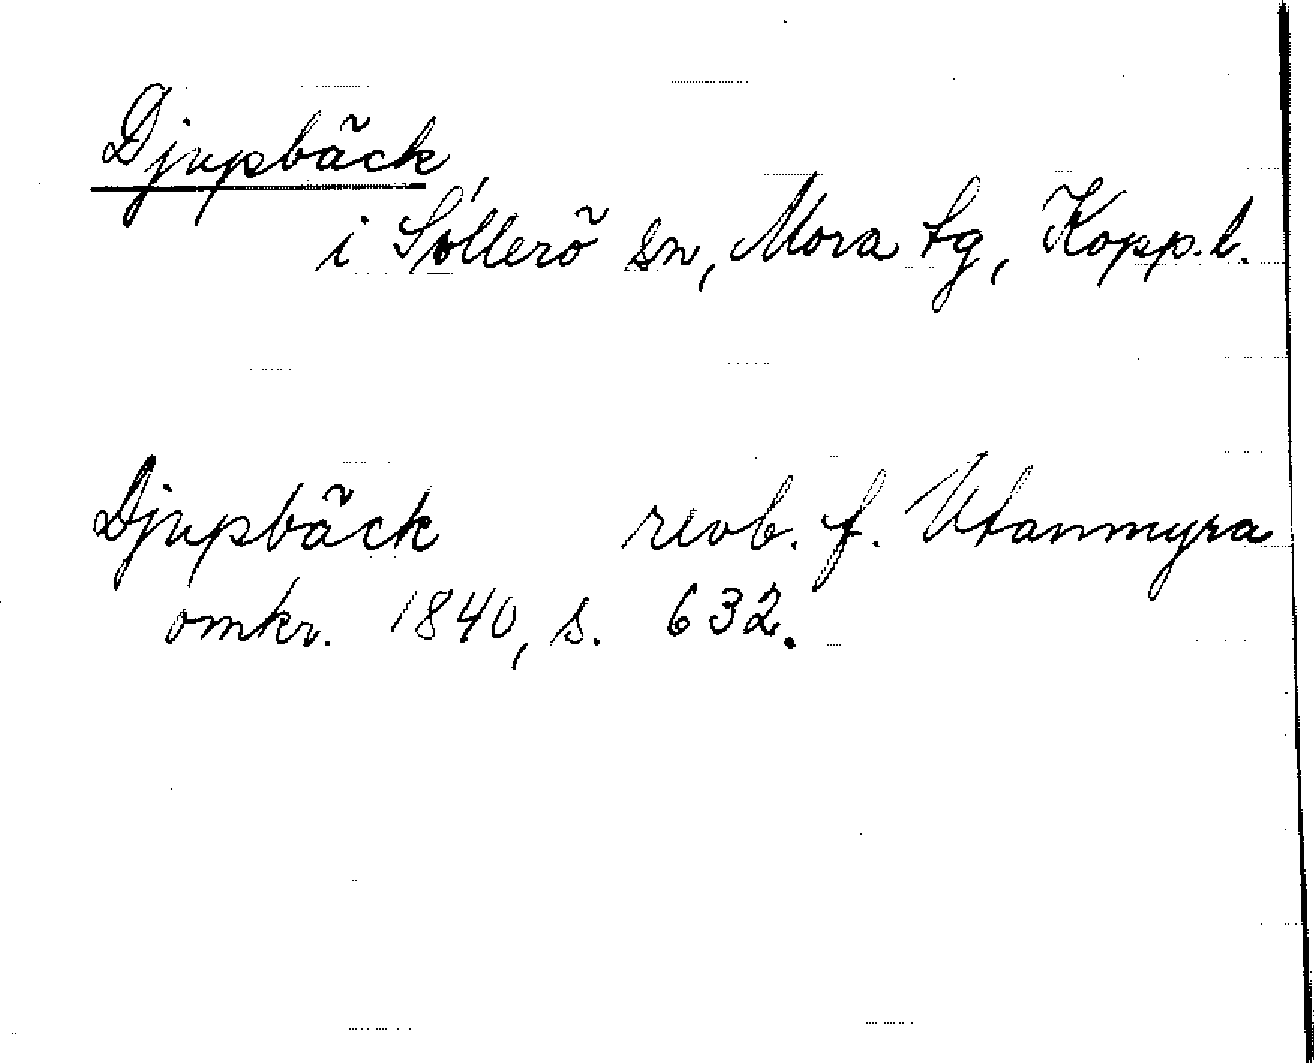 Djupbäck
i Sollerö sn, Mora tg, Kopp.l.
Djupbäck revb. f. Utanmyra
omkr. 1840, s. 632.